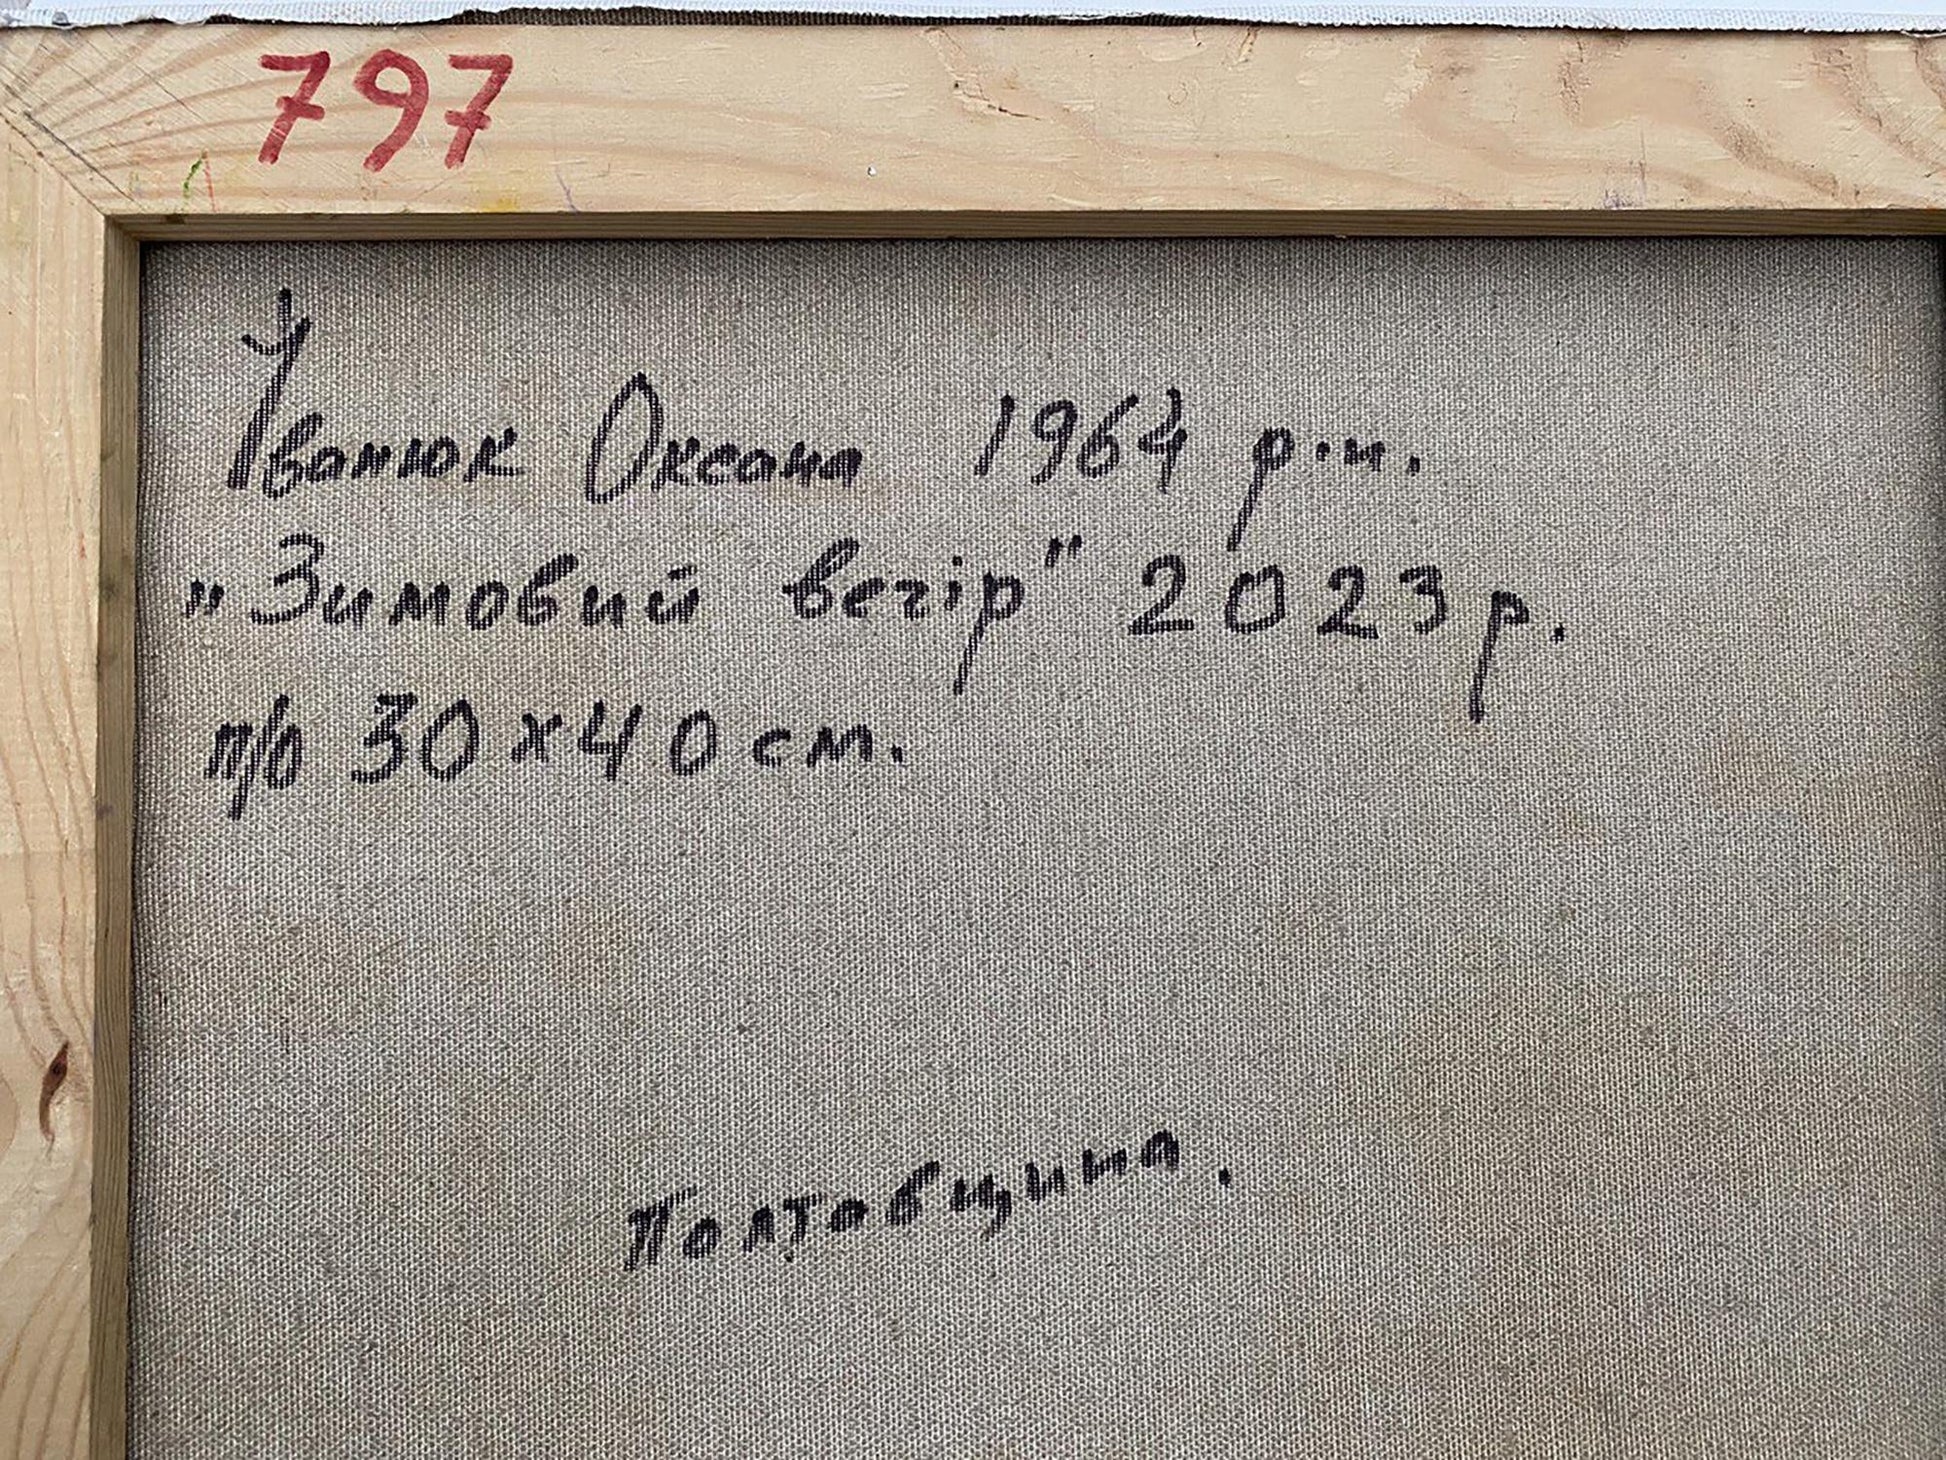 797
Іванюк Оксана 1964 р.н.
„Зимовий вечір" 2023р.
п/о 30х40см.
Полтавщина.